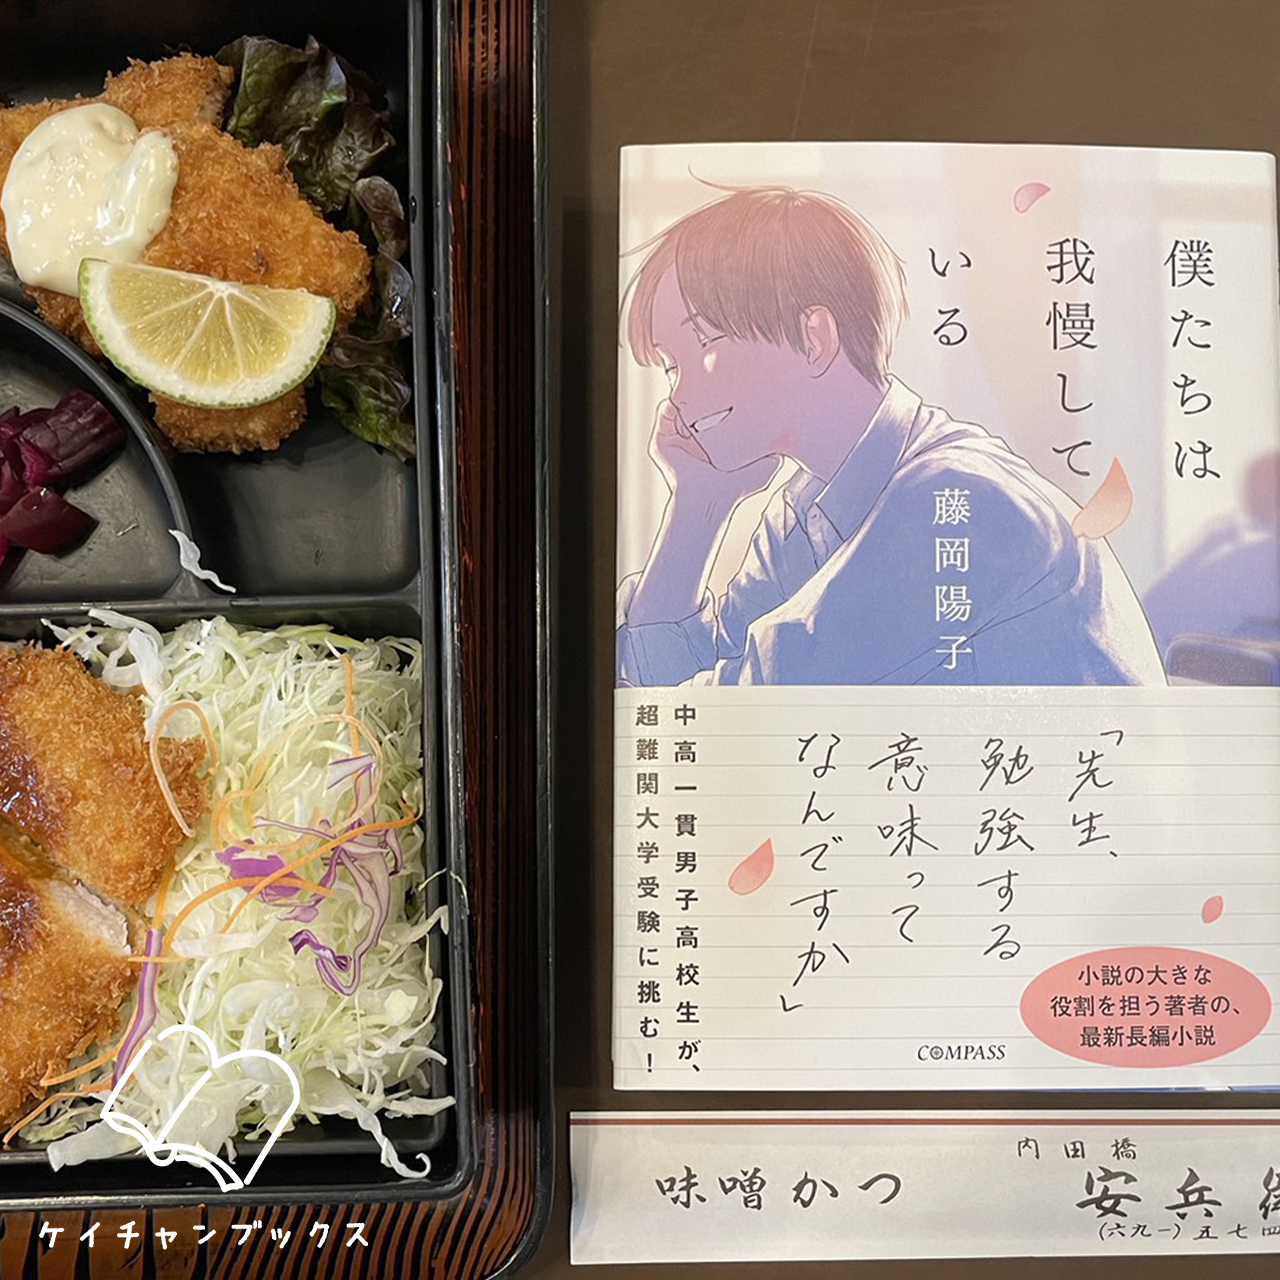 僕たちは
我慢して
いる
藤岡陽子
「先生、
勉強する
意味って
なんですか」
中高一貫男子高校生が、
超難関大学受験に挑む！
小説の大きな
役割を担う著者の、
最新長編小説
COMPASS
内田橋
味噌かつ 安兵衛
(六九一)五七四
ケイチャンブックス